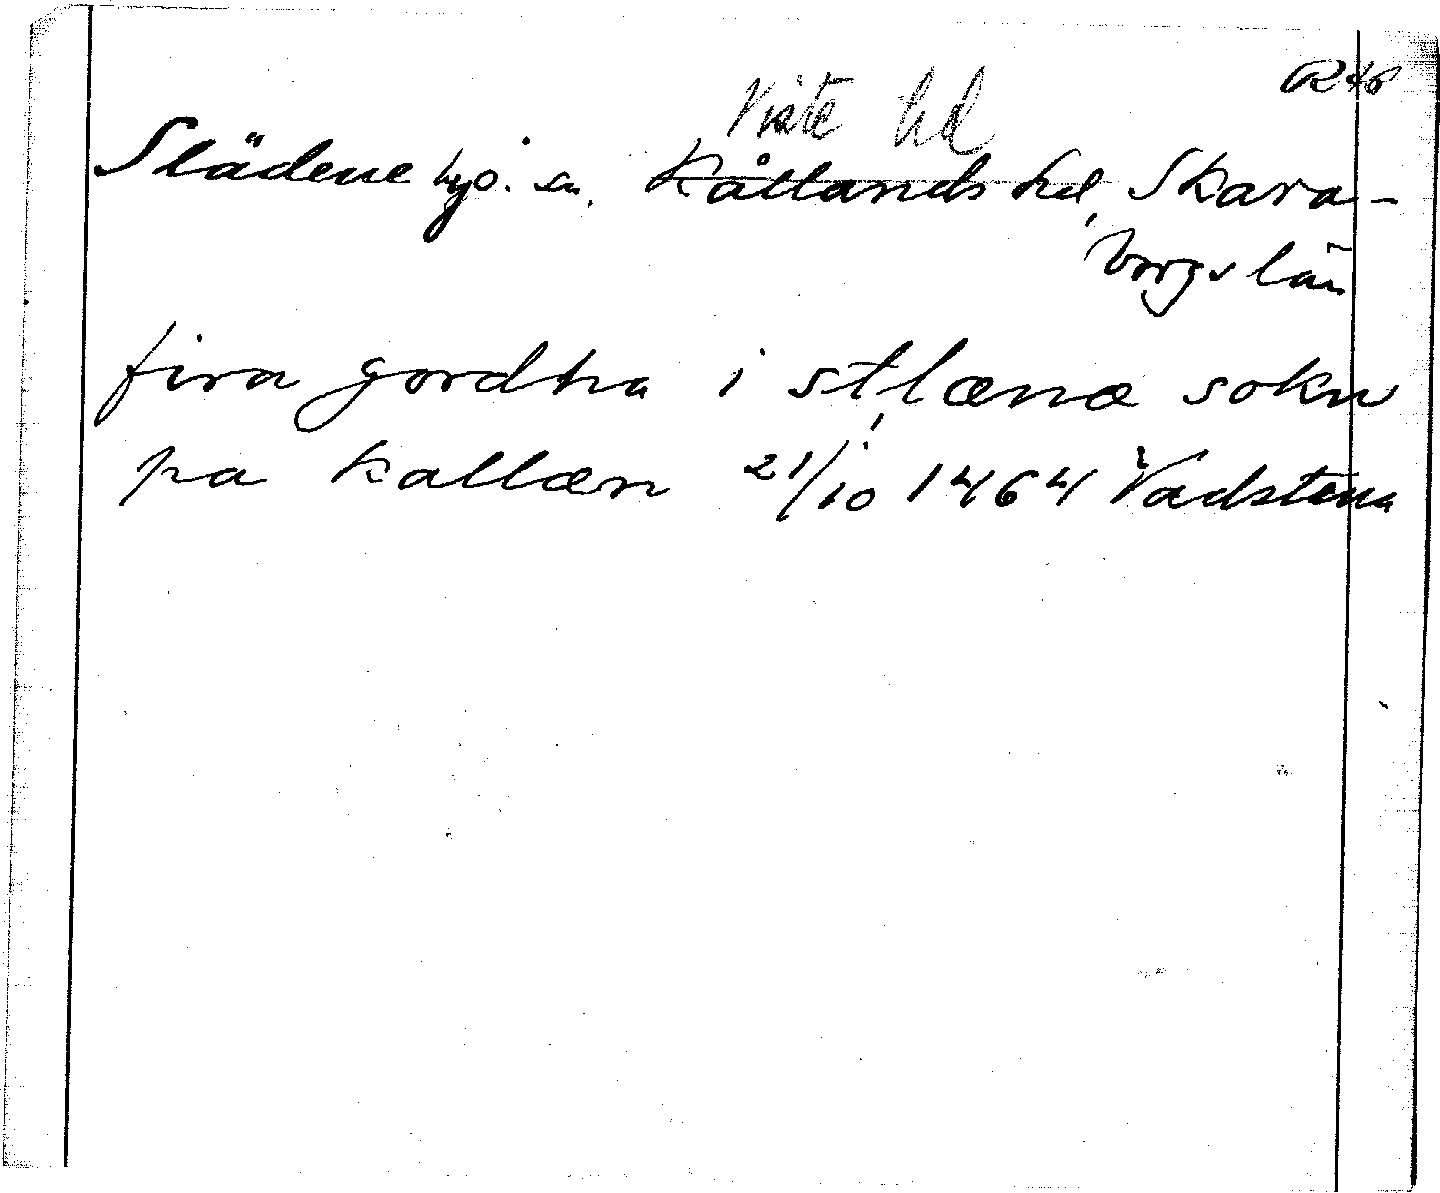 RAp
Viste hd
Slädene kyo. sn. Kållands hd, Skara-
borgs län
fira gordha i stlænæ sokn
pa kallæn 21/10 1464 Vadstena